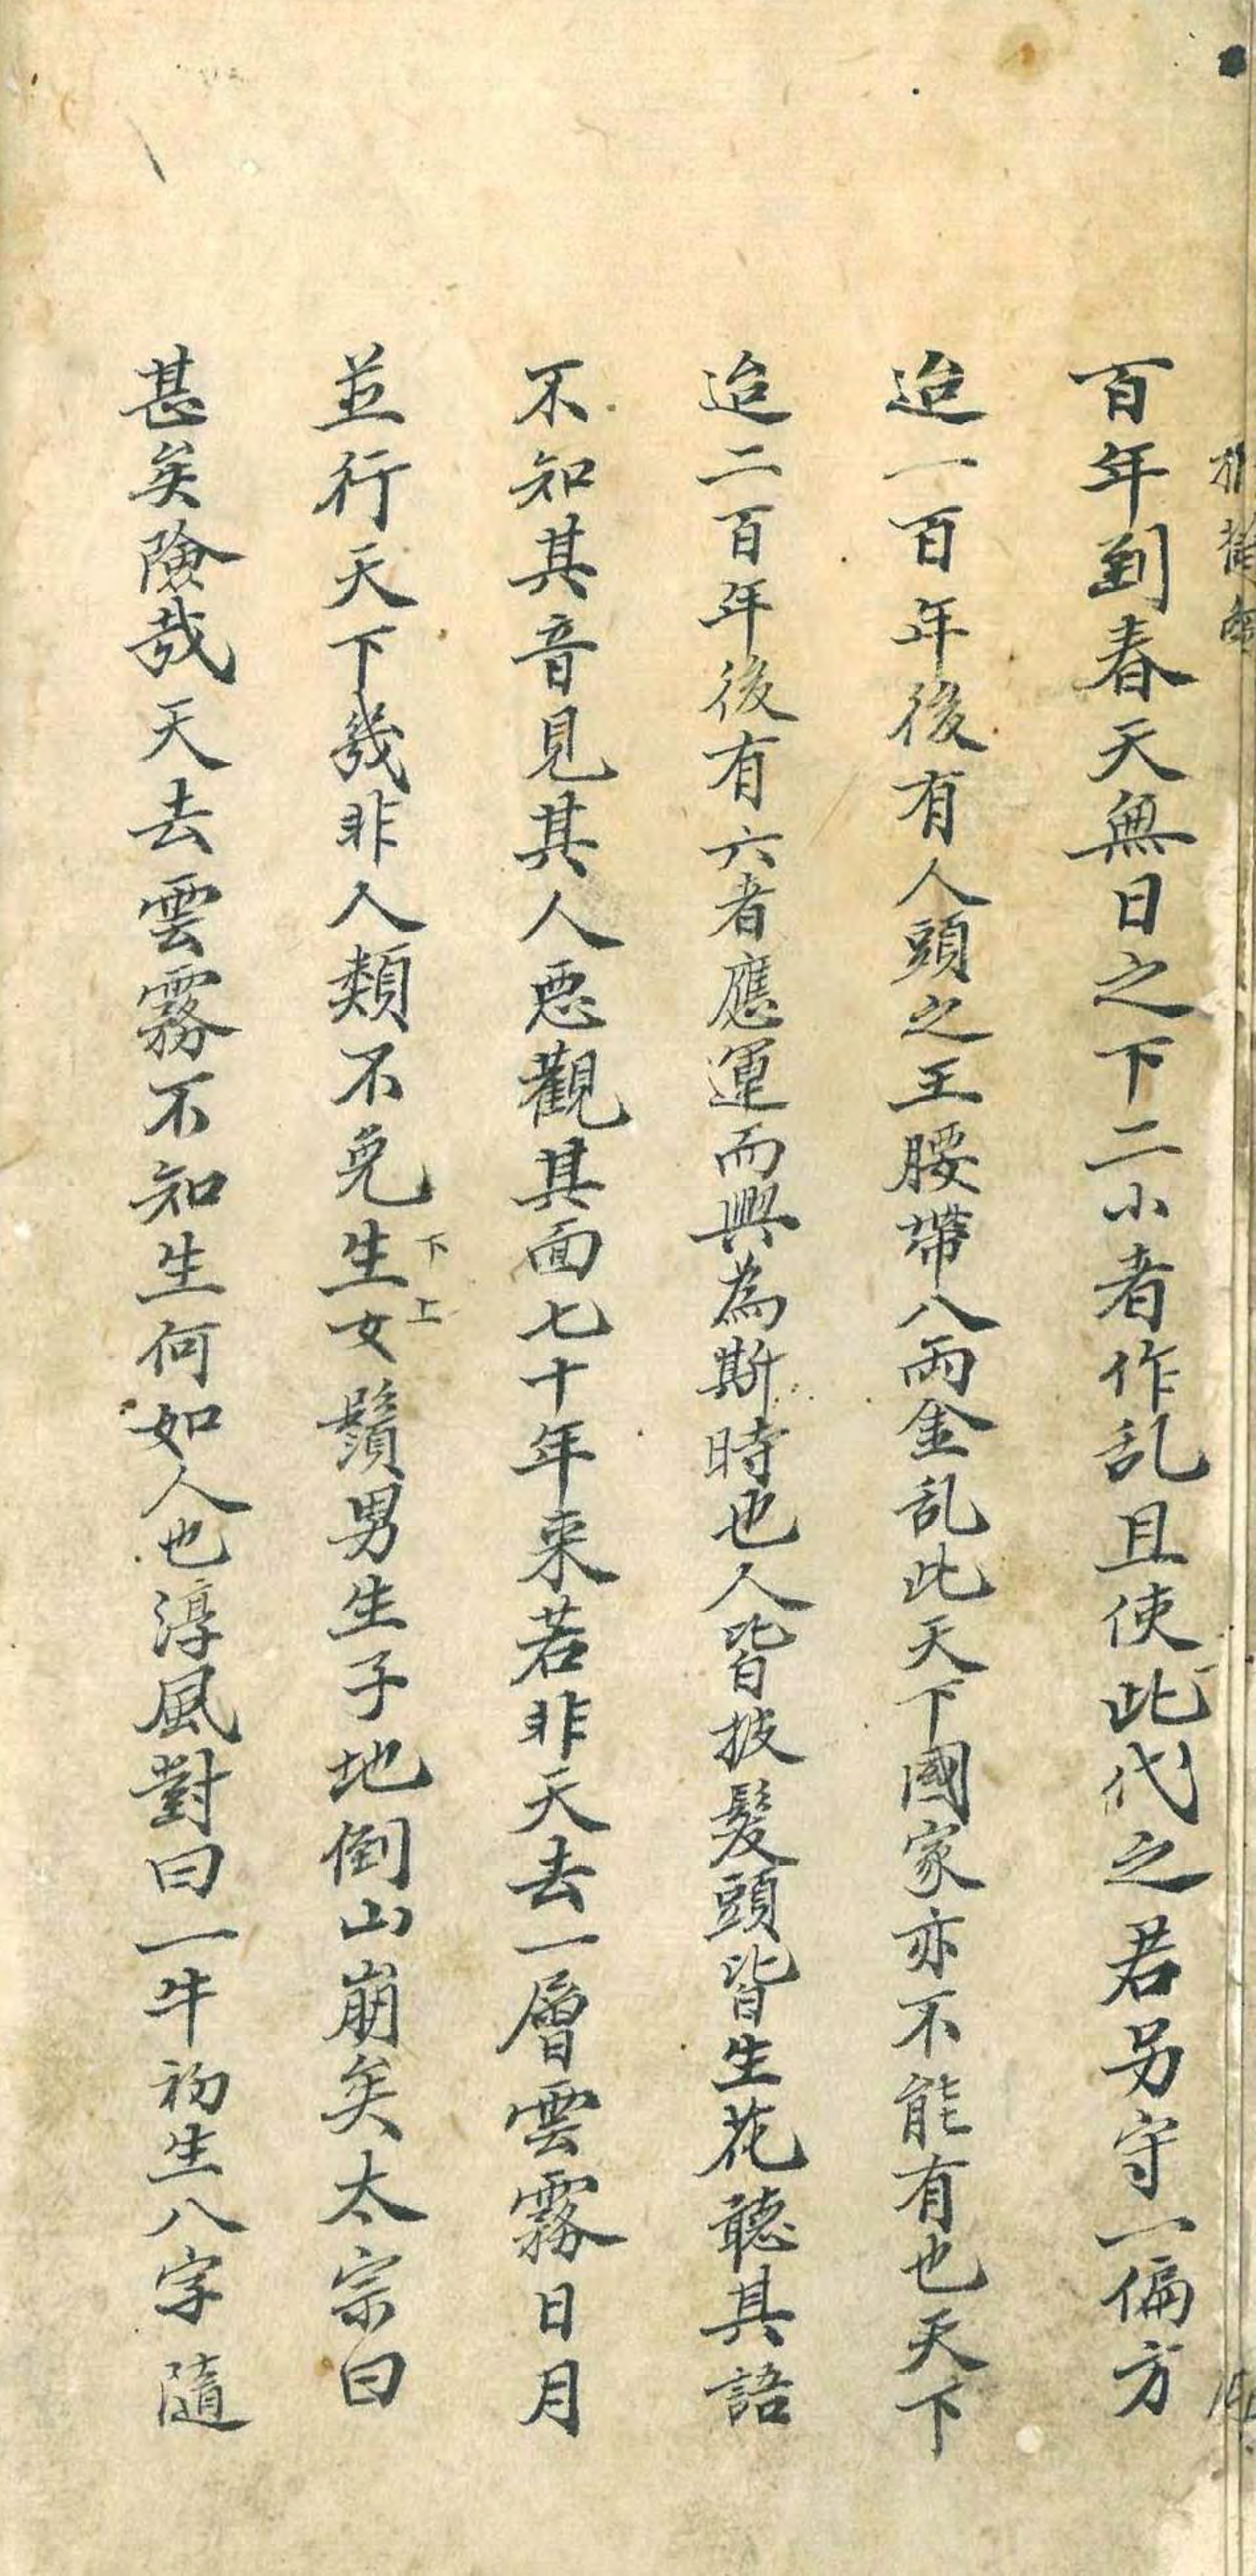 百年到春天無日之下二小者作乱且使此代之君另守一偏方
迨一百年後有人頭之王腰帶八兩金乱此天下國家亦不能有也天下
迨二百年後有六者應運而興為斯時也人皆披髮頭皆生花聽其語
不知其音見其人惡觀其面七十年來若非天去一層雲霧日月
並行天下幾非人類不免生女鬚男生子地倒山崩矣太宗曰
下上
甚矣險哉天去雲霧不知生何如人也淳風對曰一牛初生八字隨